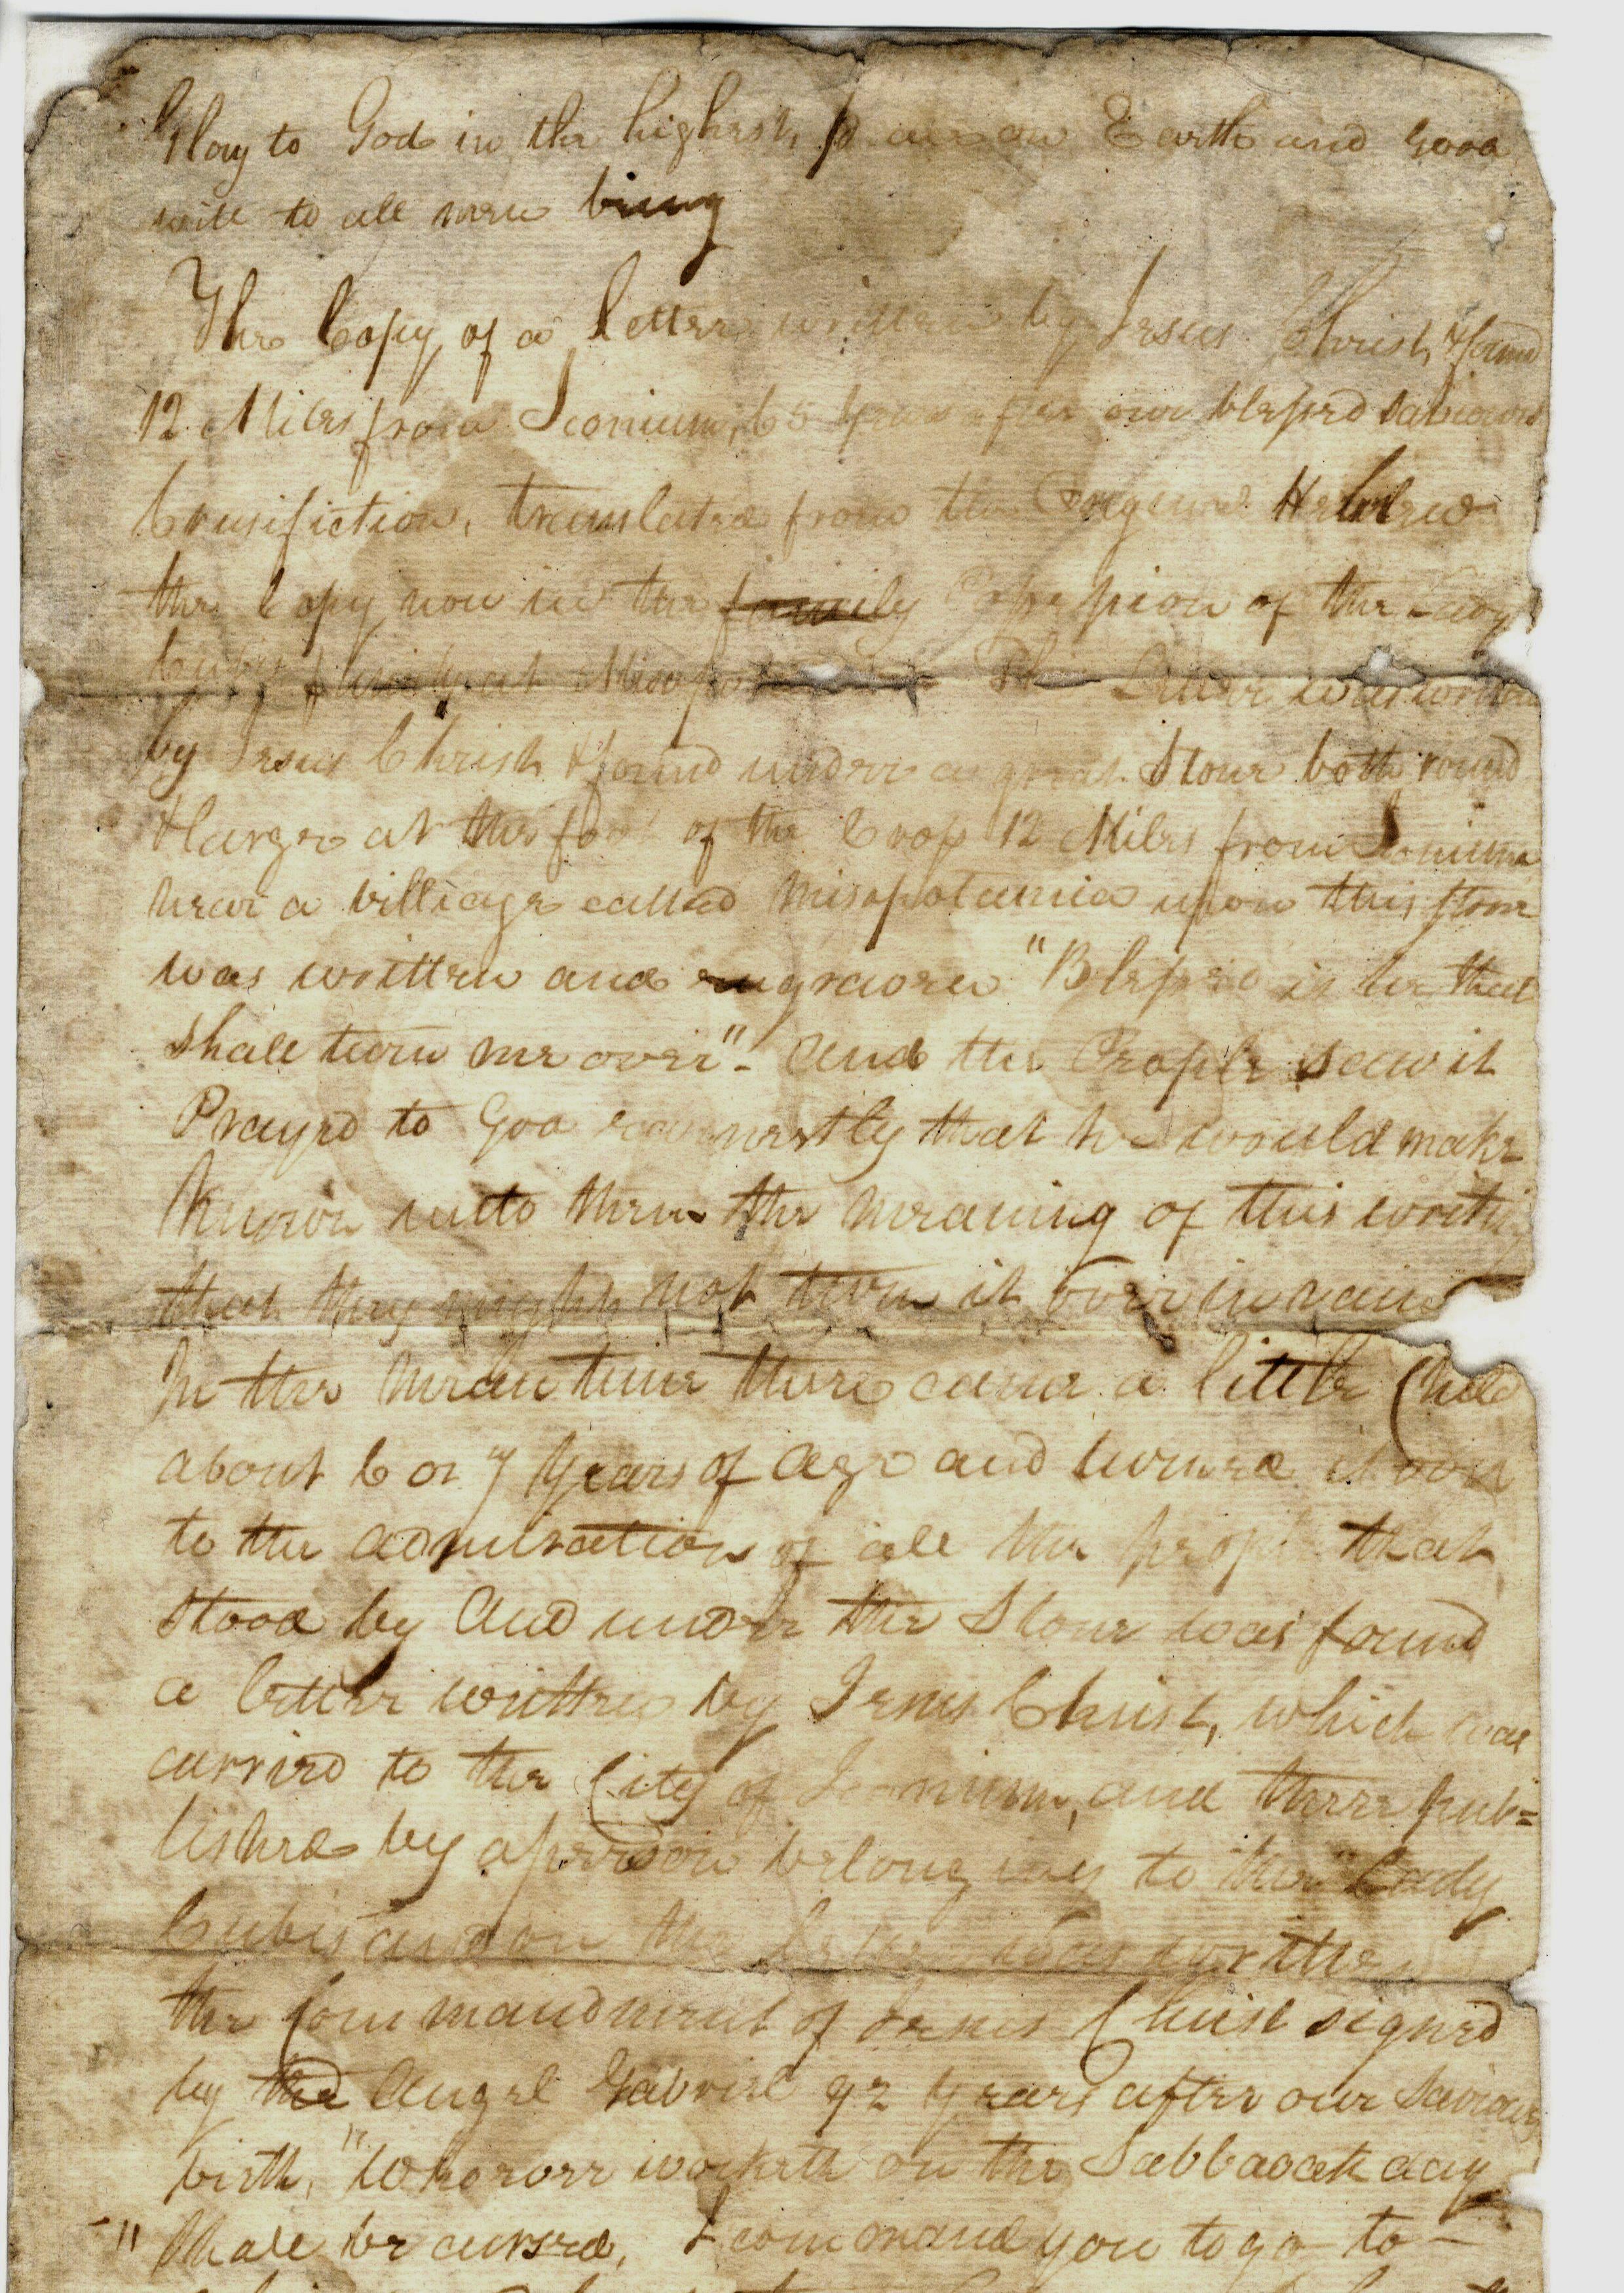 Glory to God in the highest, peace on Earth and good
will to all men being
The Copy of a letter written by Jesus Christ, & found
12 Miles from Iconium, 65 years after our blessed Saviours
Crusifiction, translated from the Original Hebrew
the Copy now in the family Possession of the Lady
The Letter was written
by Jesus Christ & found under a great Stone both round
& large at the foot of the Cross 12 Miles from Iconium
near a villiage called Misopotamia upon this stone
was written and engraven "Blessed is he that
shall turn me over"- and the People saw it
Prayed to God earnestly that he would make
known unto them the meaning of this writing
that they might not turn it over in vain
In the mean time there came a little Child
about 6 or 7 years of age and turned it over
to the admiration of all the people that
stood by and under the Stone was found
a letter written by Jesus Christ, which was
carried to the City of Iconium, and there pub=
lished by a person belonging to the Lady
Cubis and on the letter was written
the Commandment of Jesus Christ signed
by the Angel Gabriel 92 years after our Saviours
birth, "Whosoever worketh on the Sabbaoth day
" shall be cursed, I command you to go to